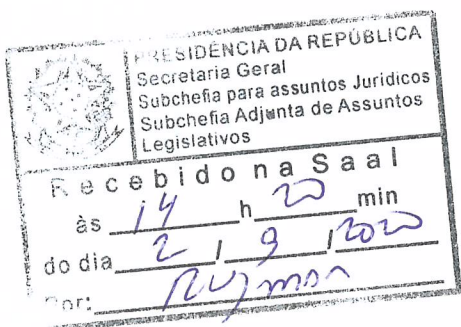 PRESIDÊNCIA DA REPÚBLICA
Secretaria Geral
Subchefia para assuntos Jurídicos
Subchefia Adjunta de Assuntos
Legislativos
Recebido na Saal
às 14 h 20 min
do dia 2 / 9 / 2020
Por: